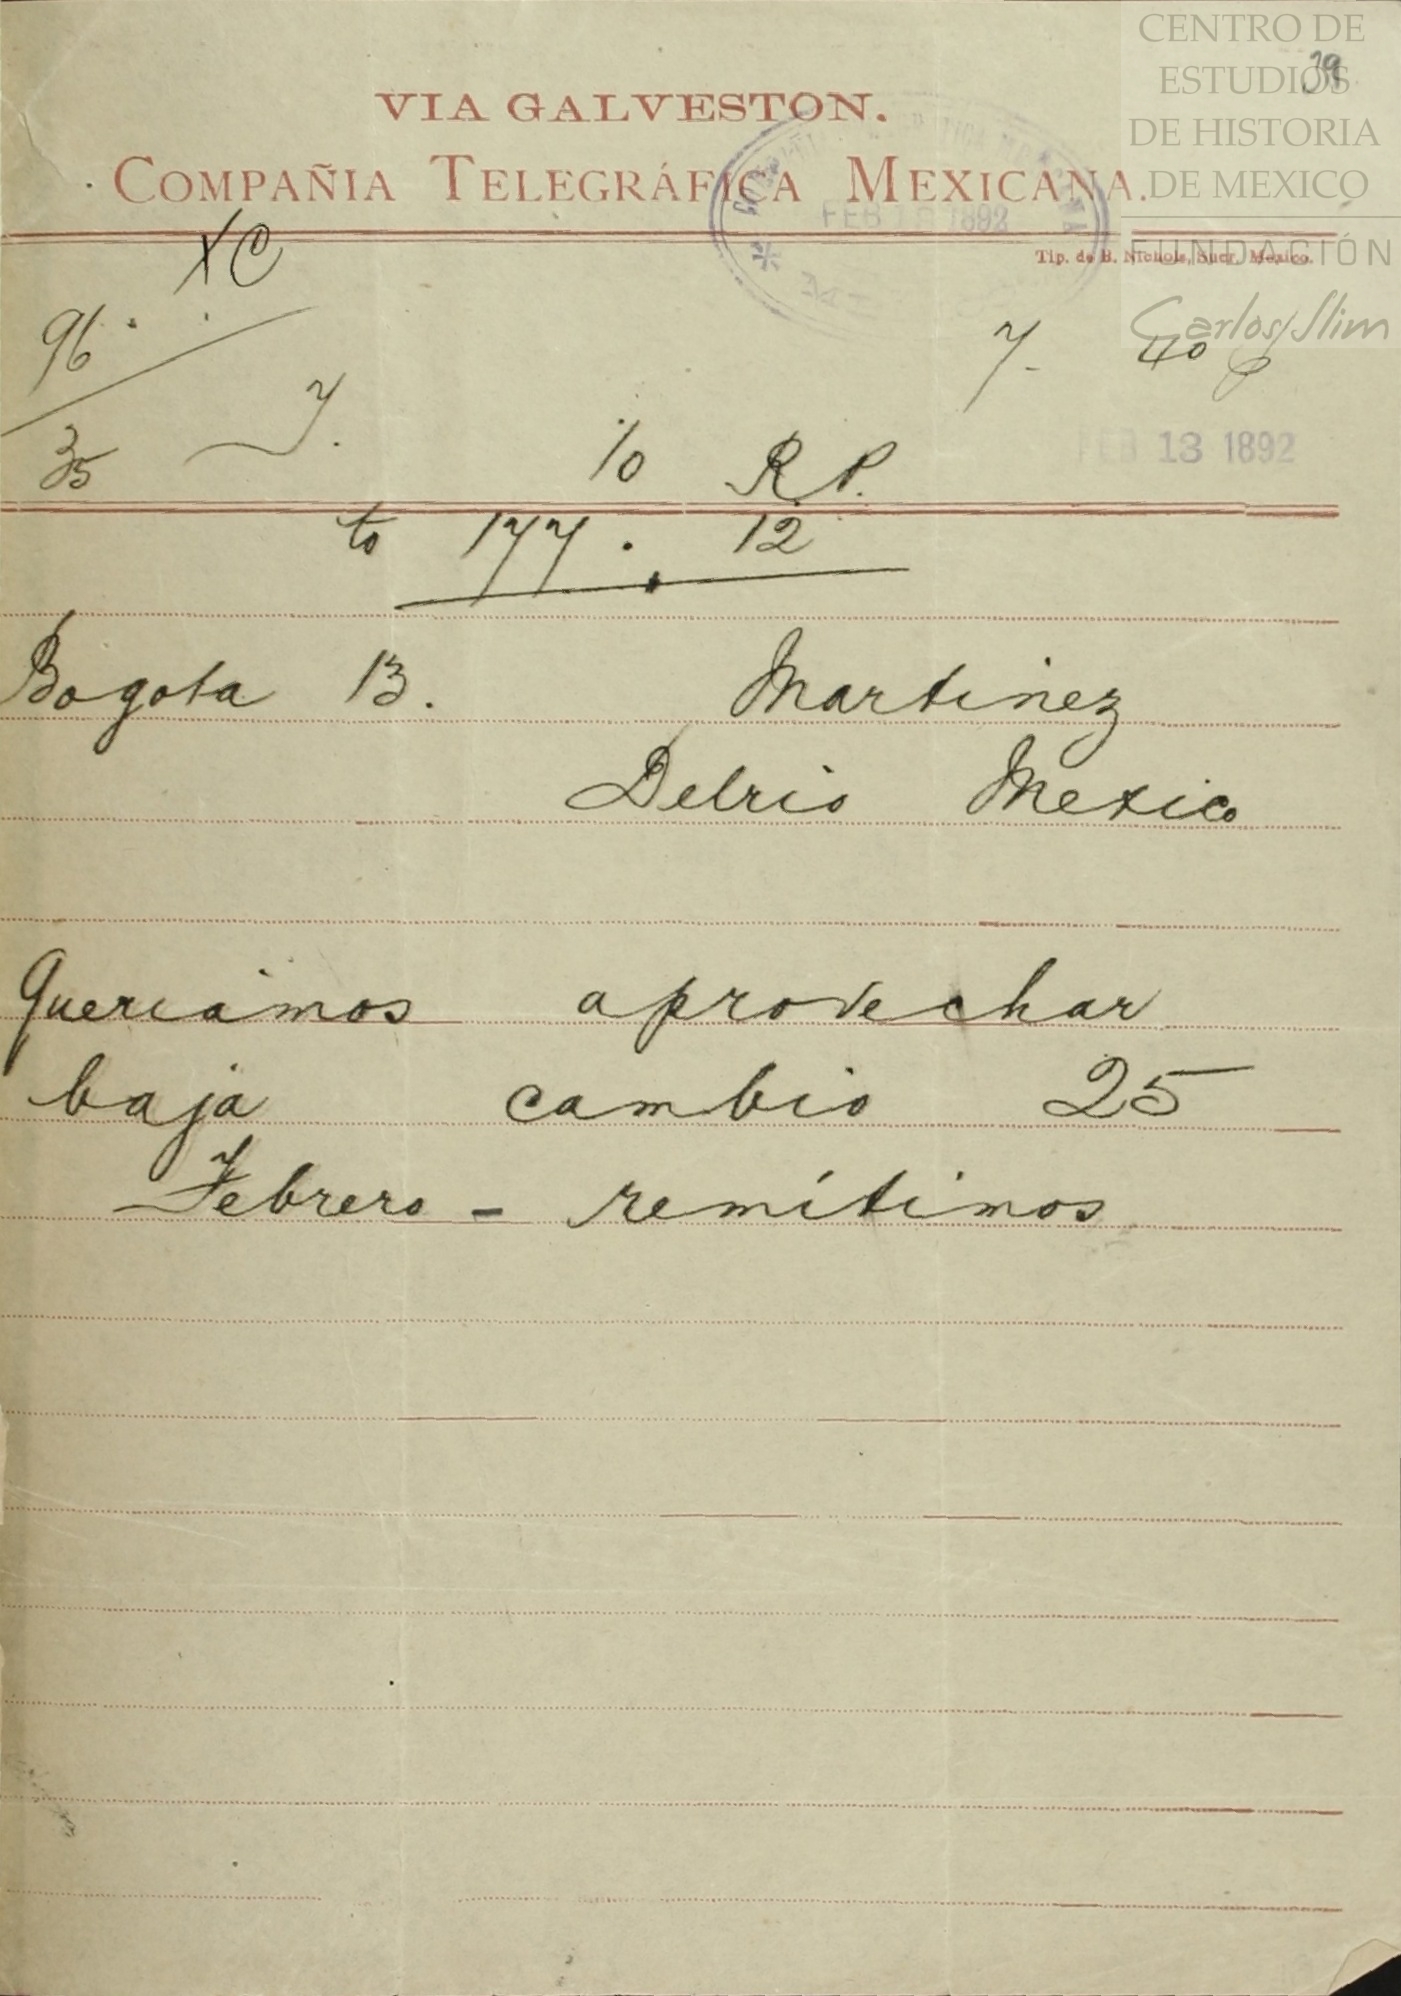 CENTRO DE
ESTUDIOS
DE HISTORIA
DE MEXICO
FUNDACIÓN
Carlos Slim
39
VIA GALVESTON.
COMPAÑIA TELEGRÁFICA MEXICANA.
FEB 13 1892
Tip. de B. Nichols, Sucr. Mexico.
XC
96
7 40 p
35 7. 10 R P.
FEB 13 1892
to 177 . 12
Bogota 13. Martinez
Delrio Mexico
Queriamos aprovechar
baja cambio 25
Febrero - remitimos